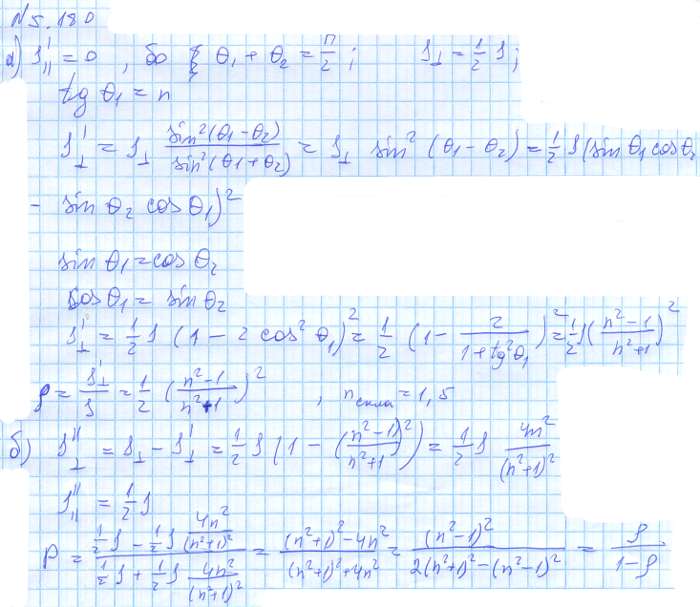 N5.180
а) I'∥ = 0, бо θ₁ + θ₂ = π/2; I⊥ = 1/2 I;
tg θ₁ = n
I'⊥ = I⊥ sin²(θ₁-θ₂)/sin²(θ₁+θ₂) = I⊥ sin² (θ₁-θ₂) = 1/2 I (sin θ₁ cos θ₂
- sin θ₂ cos θ₁)²
sin θ₁ = cos θ₂
cos θ₁ = sin θ₂
I'⊥ = 1/2 I (1 - 2 cos² θ₁)² = 1/2 (1 - 2/(1+tg²θ₁))² = 1/2 I ((n²-1)/(n²+1))²
ρ = I'⊥/I = 1/2 ((n²-1)/(n²+1))², n скла = 1,5
б) I''⊥ = I⊥ - I'⊥ = 1/2 I (1 - ((n²-1)/(n²+1))²) = 1/2 I 4n²/(n²+1)²
I''∥ = 1/2 I
P = (1/2 I - 1/2 I 4n²/(n²+1)²)/(1/2 I + 1/2 I 4n²/(n²+1)²) = ((n²+1)² - 4n²)/((n²+1)² + 4n²) = (n²-1)²/(2(n²+1)² - (n²-1)²) = ρ/(1-ρ)